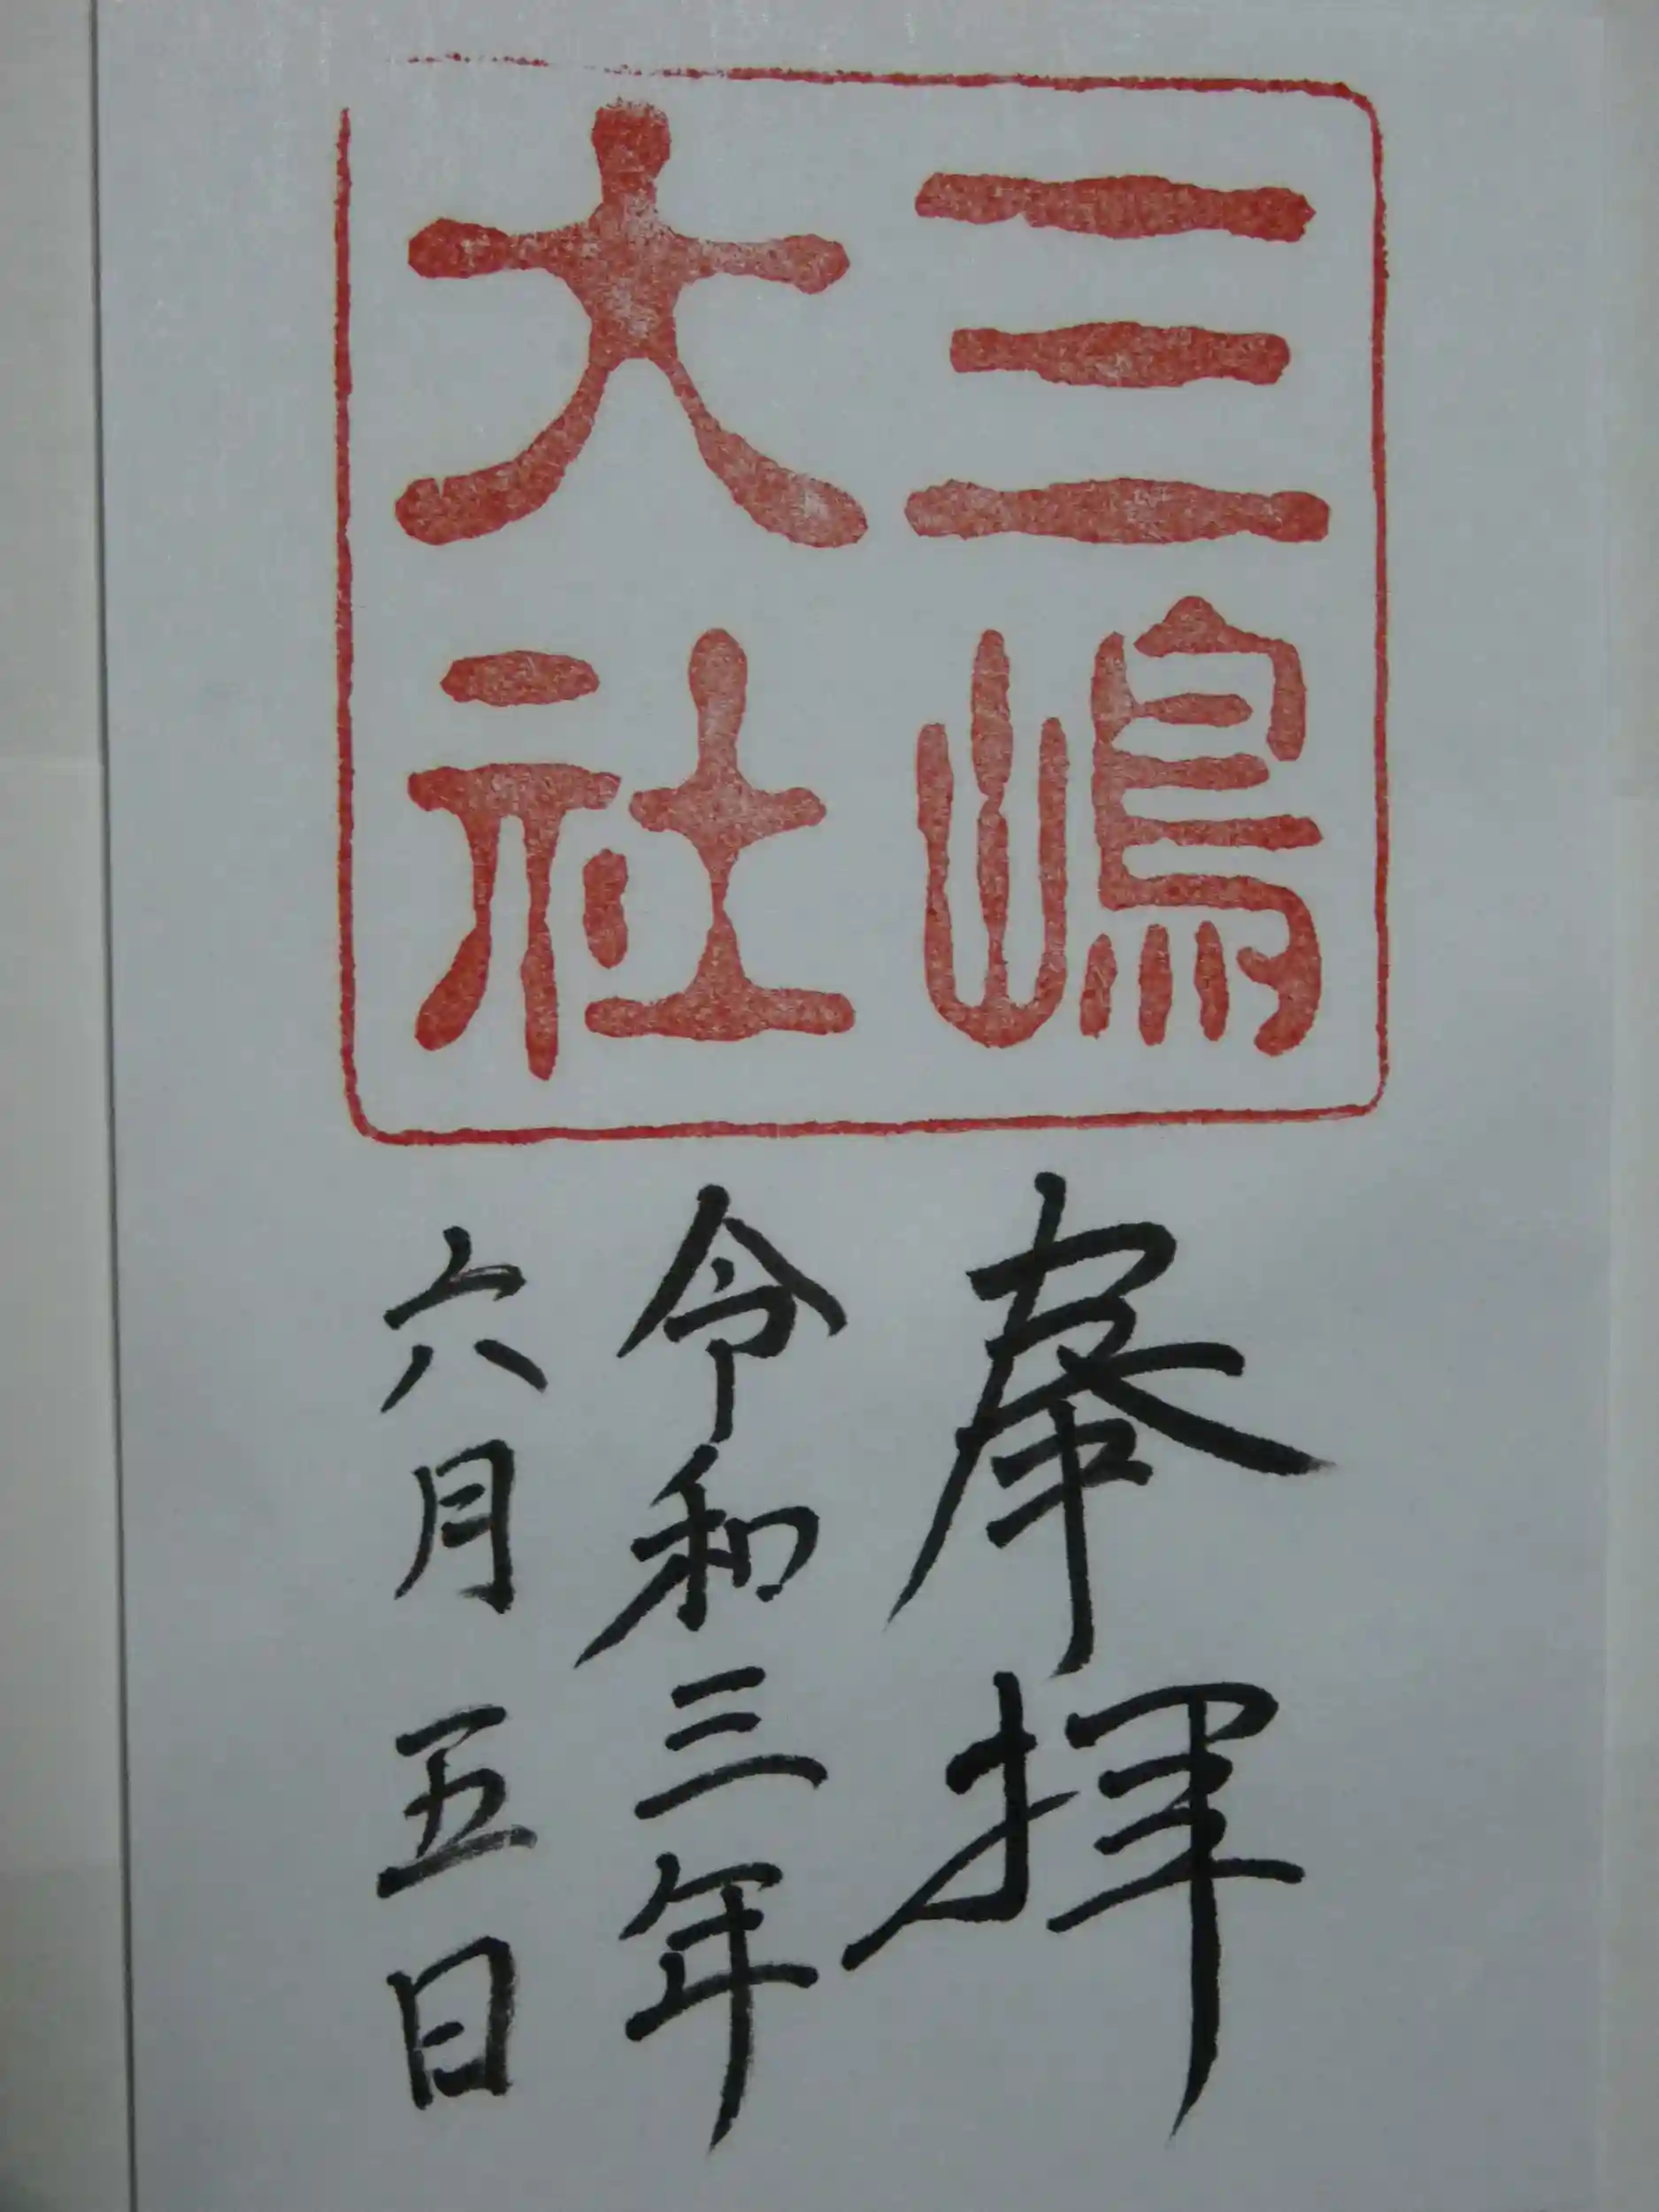 三嶋
大社
奉拝
令和三年
六月五日